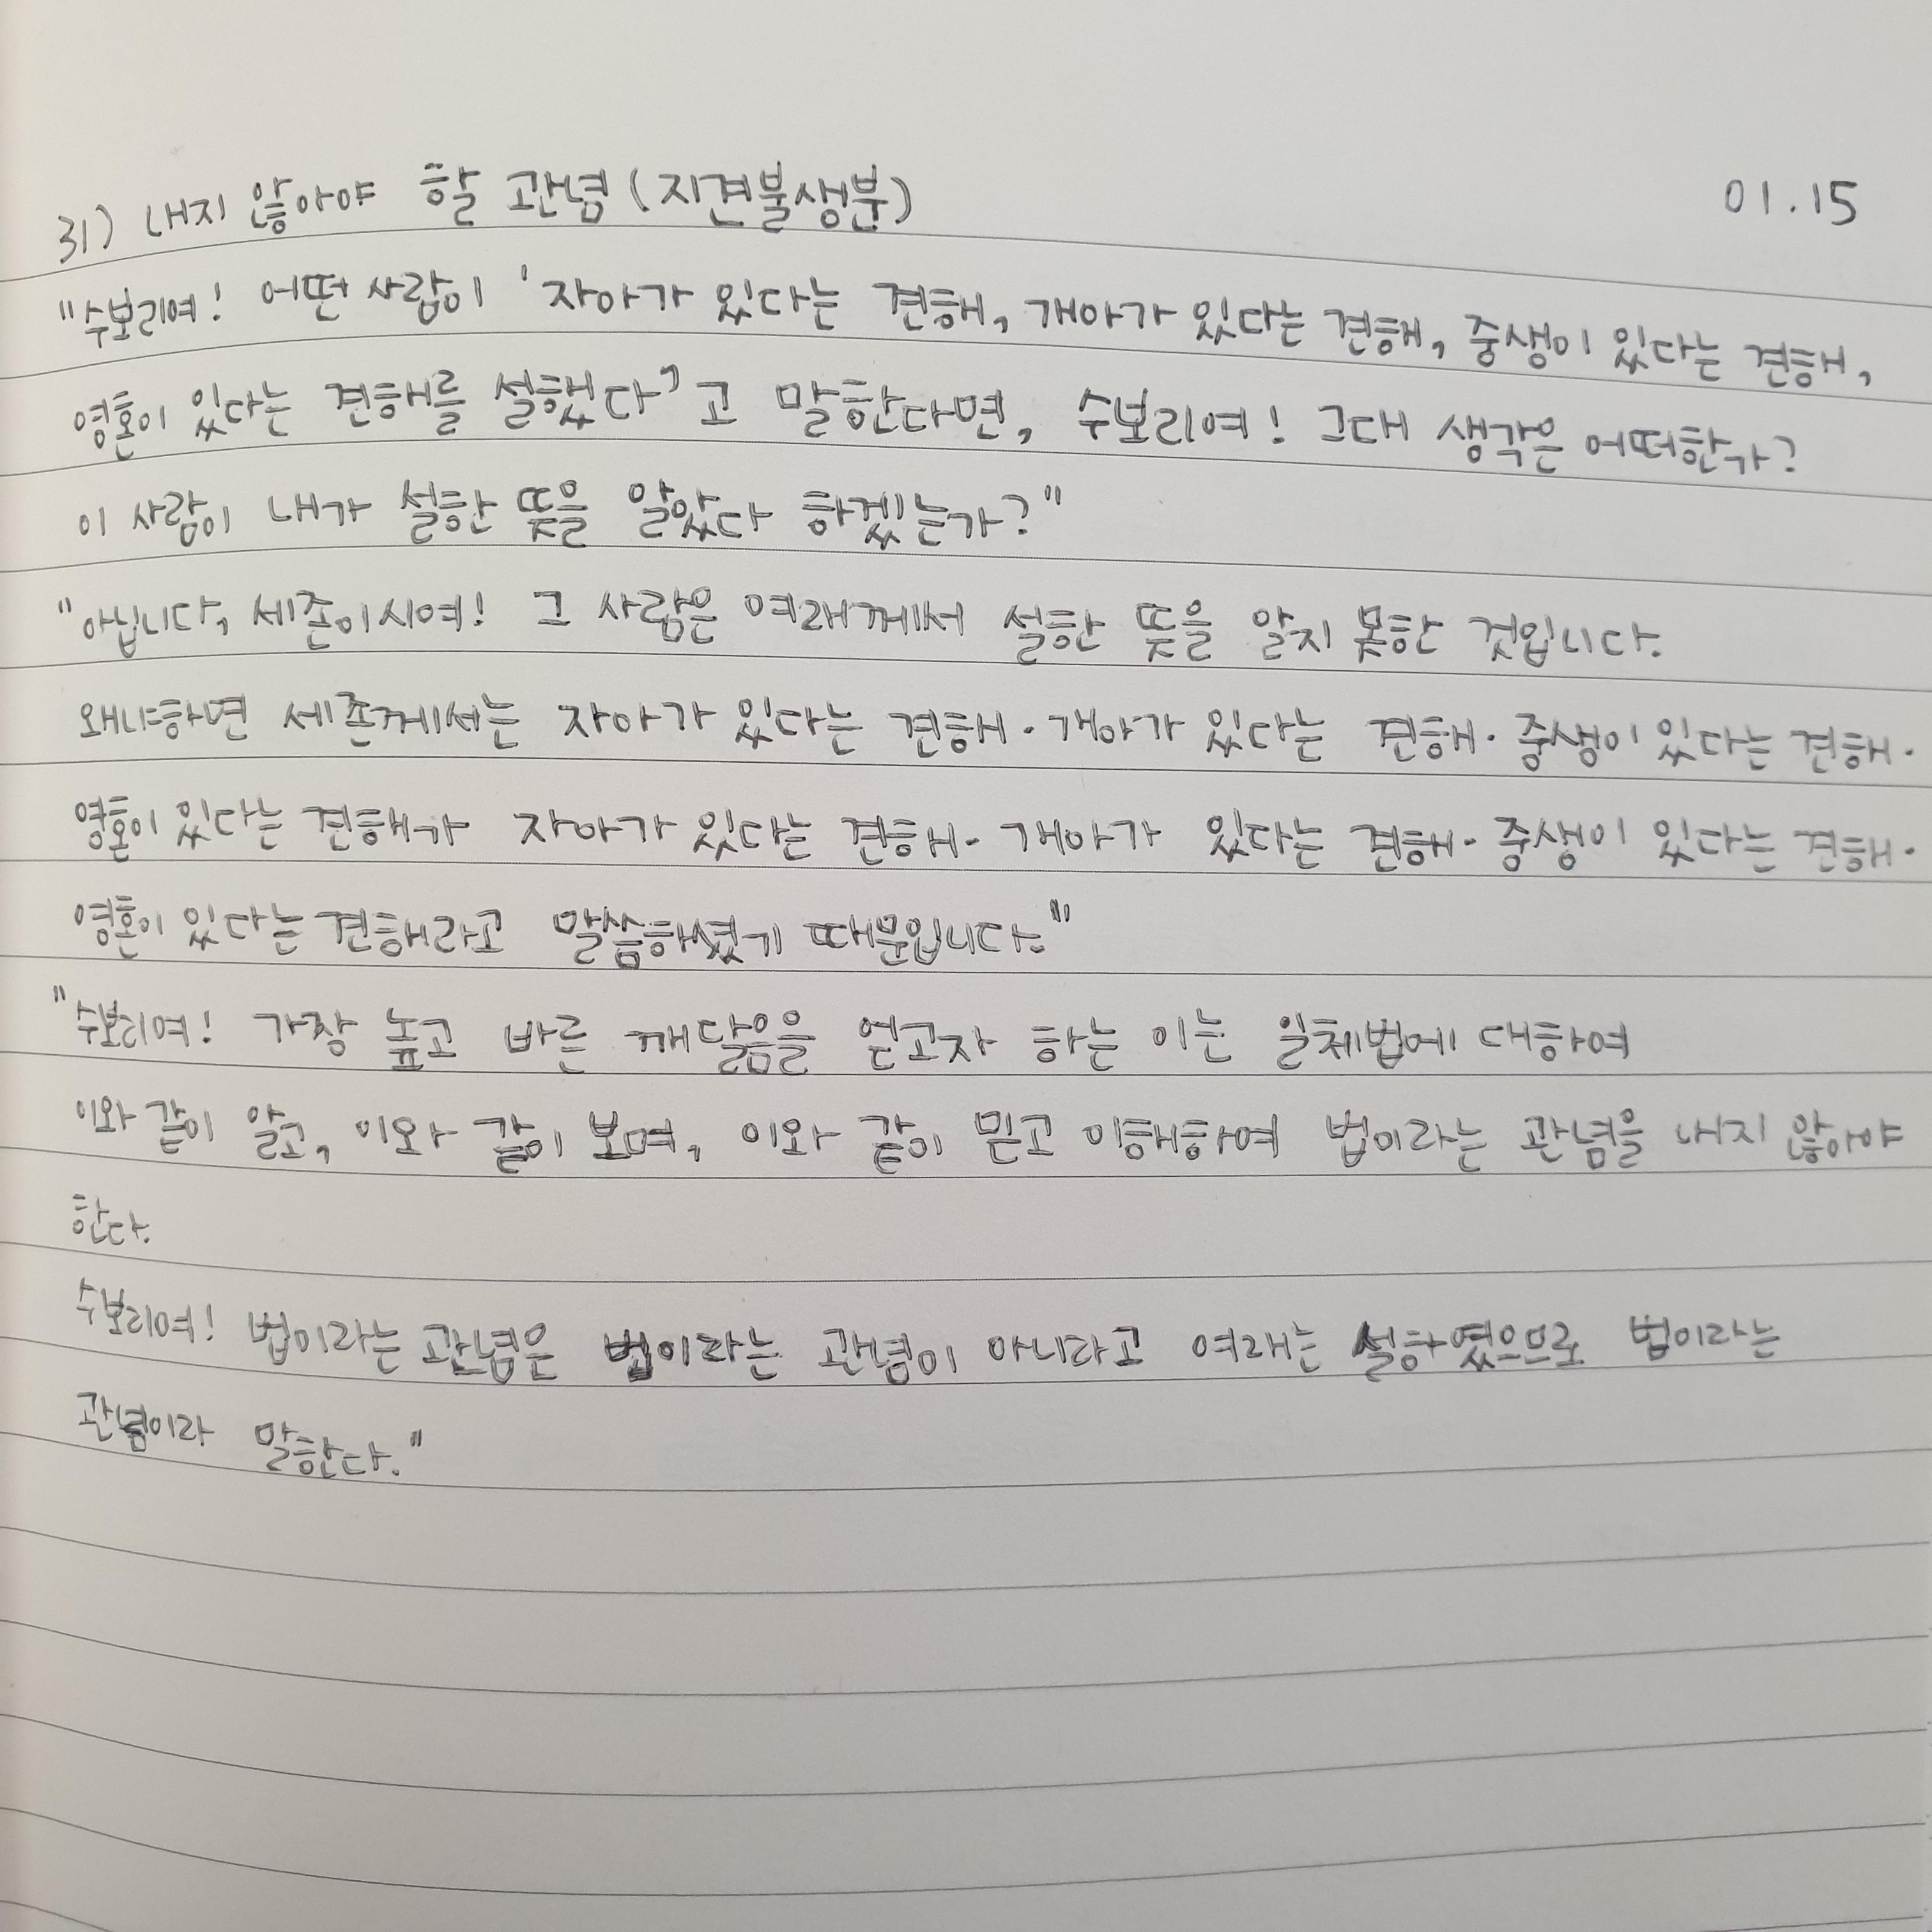 31) 내지 않아야 할 관념 (지견불생분) 01.15
"수보리여! 어떤 사람이 '자아가 있다는 견해, 개아가 있다는 견해, 중생이 있다는 견해,
영혼이 있다는 견해를 설했다'고 말한다면, 수보리여! 그대 생각은 어떠한가?
이 사람이 내가 설한 뜻을 알았다 하겠는가?"
"아닙니다, 세존이시여! 그 사람은 여래께서 설한 뜻을 알지 못한 것입니다.
왜냐하면 세존께서는 자아가 있다는 견해·개아가 있다는 견해·중생이 있다는 견해·
영혼이 있다는 견해가 자아가 있다는 견해·개아가 있다는 견해·중생이 있다는 견해·
영혼이 있다는 견해라고 말씀하셨기 때문입니다."
"수보리여! 가장 높고 바른 깨달음을 얻고자 하는 이는 일체법에 대하여
이와 같이 알고, 이와 같이 보며, 이와 같이 믿고 이해하여 법이라는 관념을 내지 않아야
한다.
수보리여! 법이라는 관념은 법이라는 관념이 아니다고 여래는 설하였으므로 법이라는
관념이라 말한다."